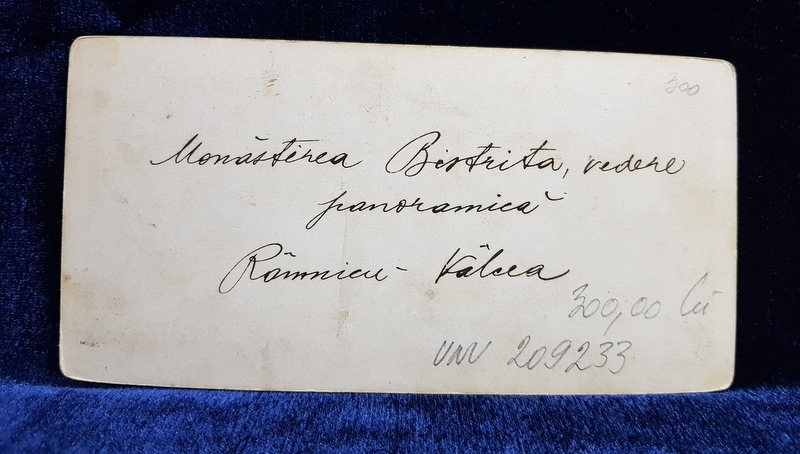 300
Monăstirea Bistrita, vedere
panoramică
Râmnicu - Vâlcea
300,00 lei
VNV 209233